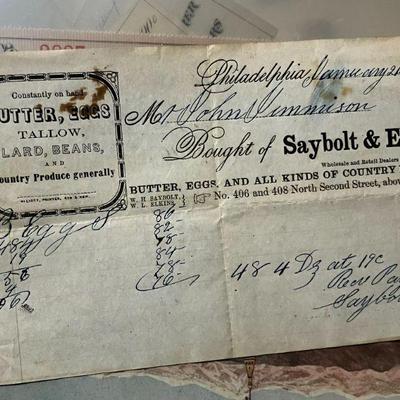 Constantly on hand
BUTTER, EGGS
TALLOW,
LARD, BEANS,
AND
Country Produce generally
Philadelphia January 2
Mr John
Bought of Saybolt & E
Wholesale and Retail Dealers
BUTTER, EGGS, AND ALL KINDS OF COUNTRY
W. H. SAYBOLT,
W. L. ELKINS,
No. 406 and 408 North Second Street, abov
Eggs
86
82
78
84
78
76
484 Dz at 19c
Rec Pa
Saybo